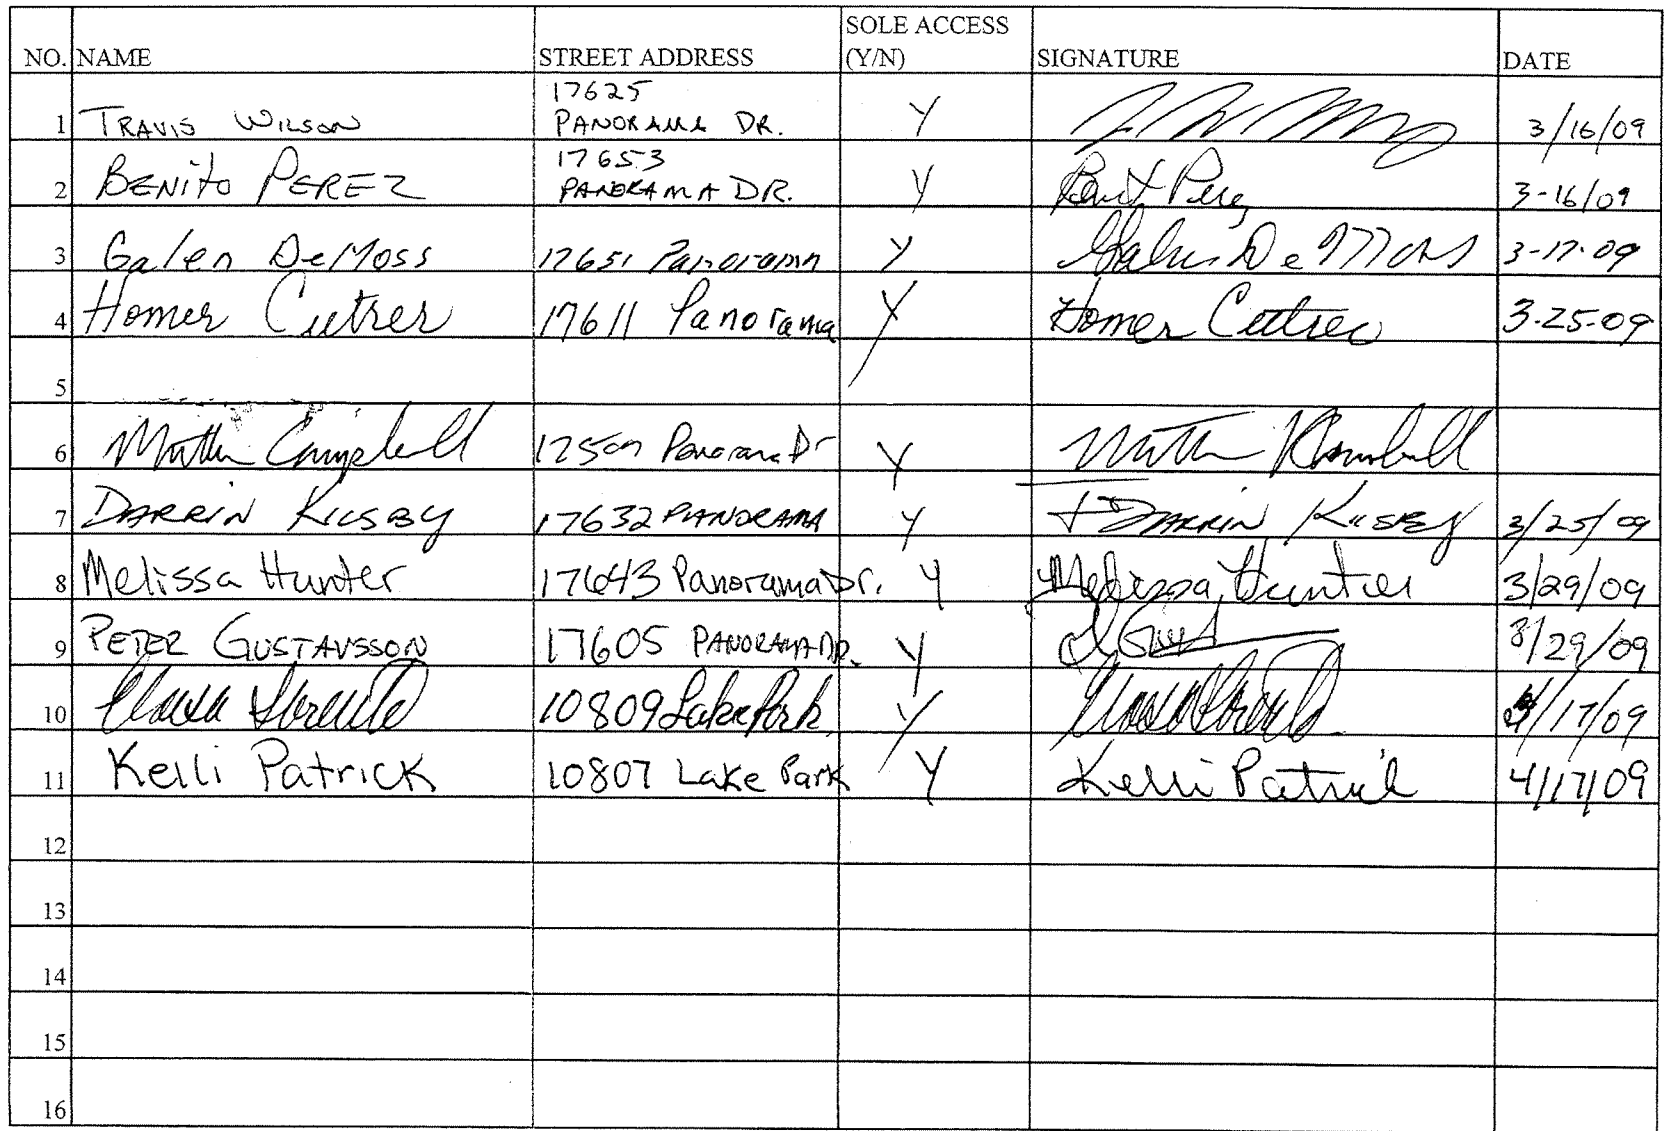 NO. NAME STREET ADDRESS SOLE ACCESS (Y/N) SIGNATURE DATE
1 TRAVIS WILSON 17625 PANORAMA DR. Y 3/16/09
2 BENITO PEREZ 17653 PANORAMA DR. Y Benito Perez 3-16/09
3 Galen DeMoss 17651 Panorama Y Galen DeMoss 3-17-09
4 Homer Cutrer 17611 Panorama Y Homer Cutrer 3-25-09
5
6 Campbell Panorama Dr Y
7 DARRIN KILSBY 17632 PANORAMA Y DARRIN KILSBY 3/25/09
8 Melissa Hunter 17643 Panorama Dr. Y Melissa Hunter 3/29/09
9 PETER GUSTAVSSON 17605 PANORAMA DR. Y 3/29/09
10 10809 Lake Park Y /17/09
11 Kelli Patrick 10807 Lake Park Y Kelli Patrick 4/17/09
12
13
14
15
16